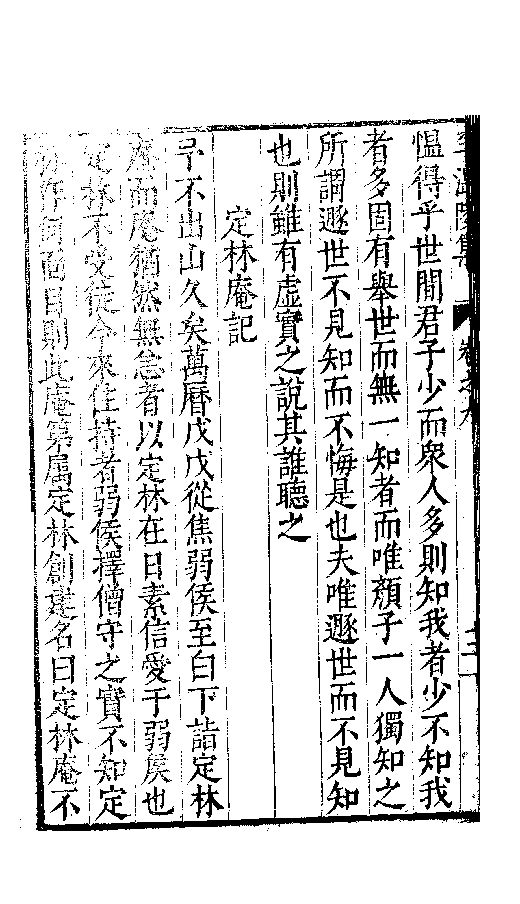 李溫陵集 卷之九
慍得乎世間君子少而衆人多則知我者少不知我
者多固有舉世而無一知者而唯顏子一人獨知之
所謂遯世不見知而不悔是也夫唯遯世而不見知
也則雖有虛實之說其誰聽之
定林庵記
予不出山久矣萬曆戊戌從焦弱侯至白下詣定林
庵而庵猶然無恙者以定林在日素信愛于弱侯也
定林不受徒今來住持者弱侯擇僧守之實不知定
林作何面目則此庵第属定林創建名曰定林庵不